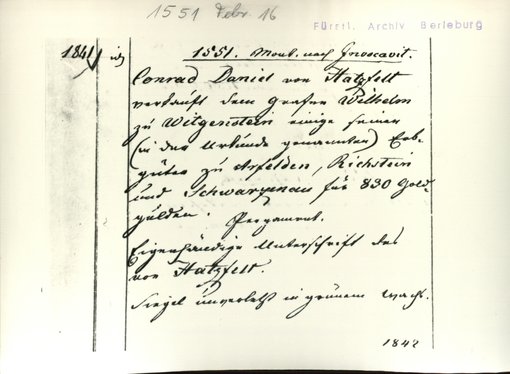 1551 Febr. 16
Fürstl. Archiv Berleburg
1841
1551. Mont. nach Invocavit.
Conrad Daniel von Hatzfelt
verkauft dem Grafen Wilhelm
zu Witgenstein einige seiner
(in der Urkunde genannten) Erb-
güter zu Arfelden, Richstein
und Schwarzenau für 830 Gold-
gülden. Pergament.
Eigenhändige Unterschrift des
von Hatzfelt.
Siegel unverletzt in grünem Wachs.
1842